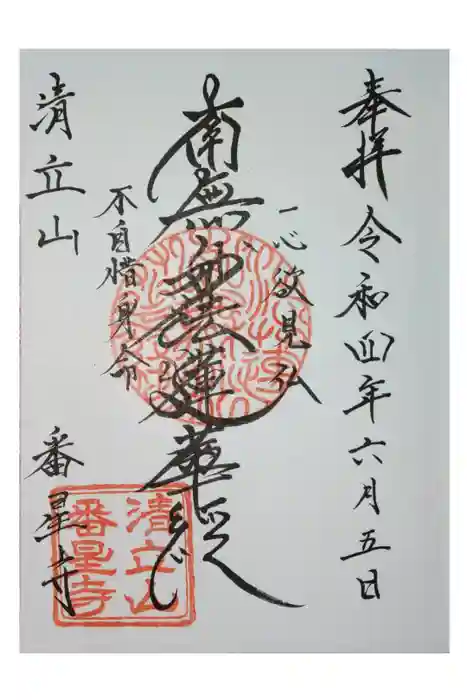 奉拝 令和四年六月五日
一心欲見仏
南無妙法蓮華経
不自惜身命
清立山
番星寺
清立山
番星寺